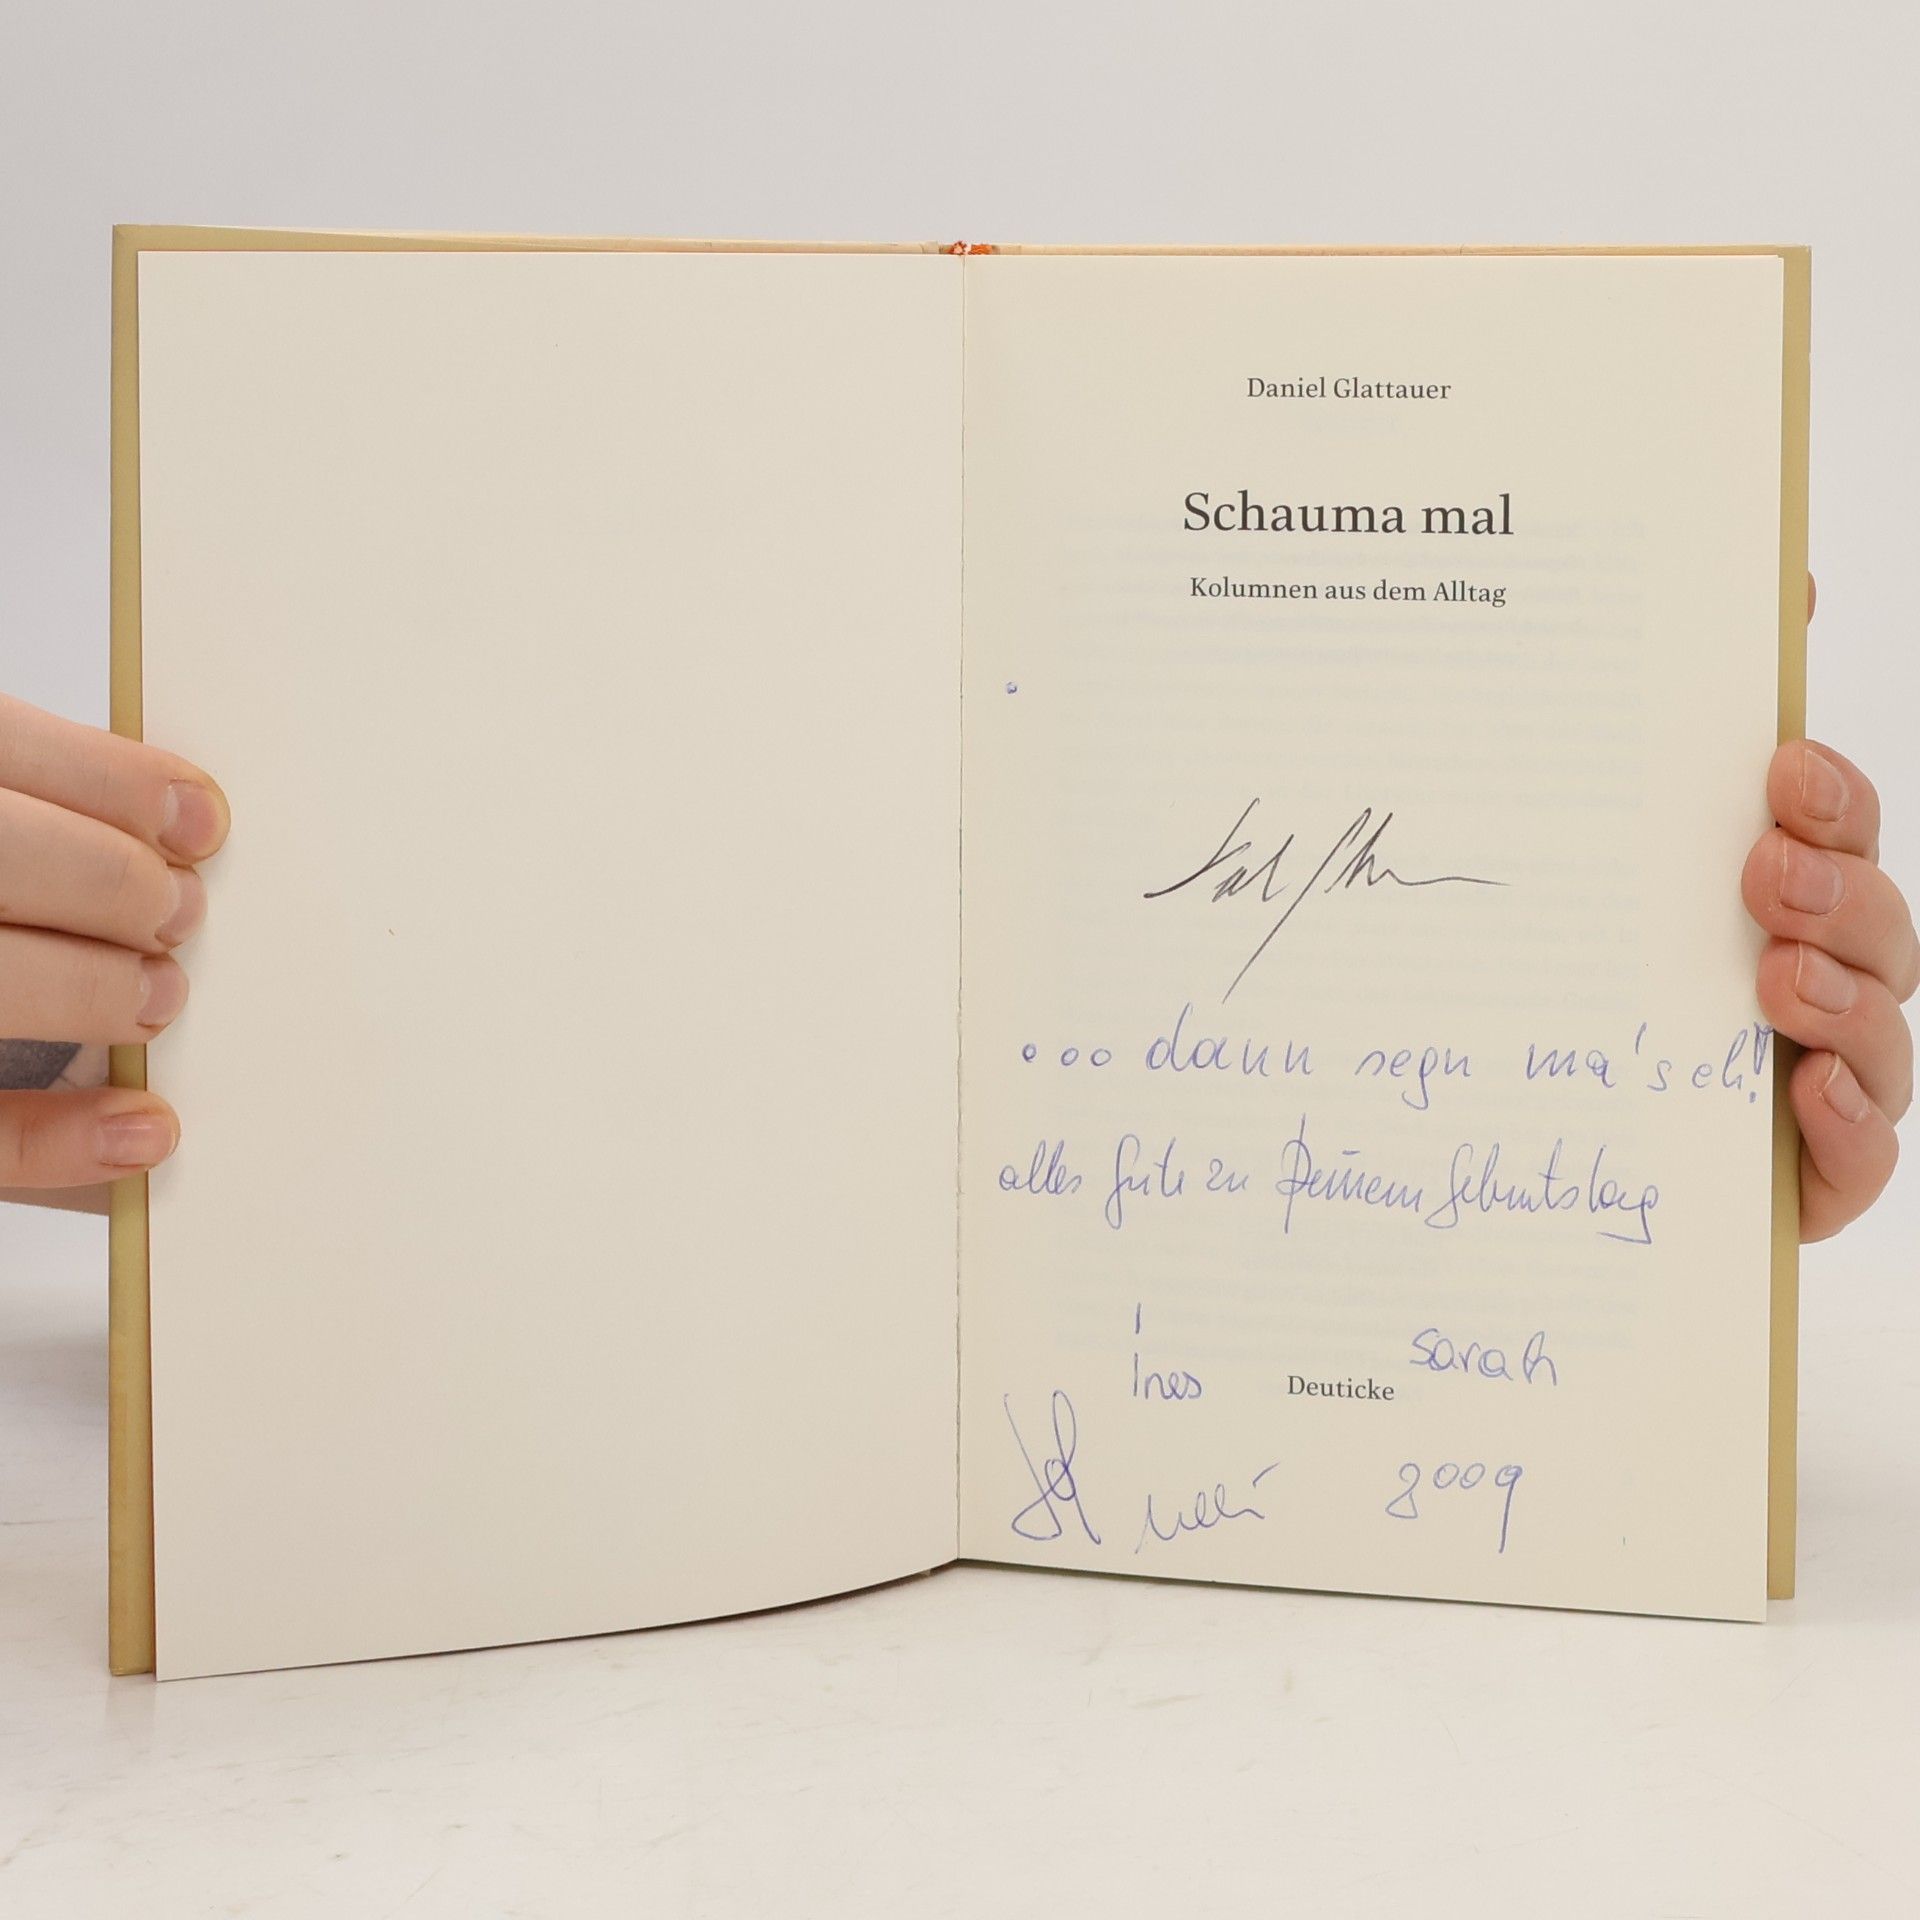 Daniel Glattauer
Schauma mal
Kolumnen aus dem Alltag
... dann segn ma's eh!
alles Gute zu Deinem Geburtstag
Ines Sarah
Deuticke
2009